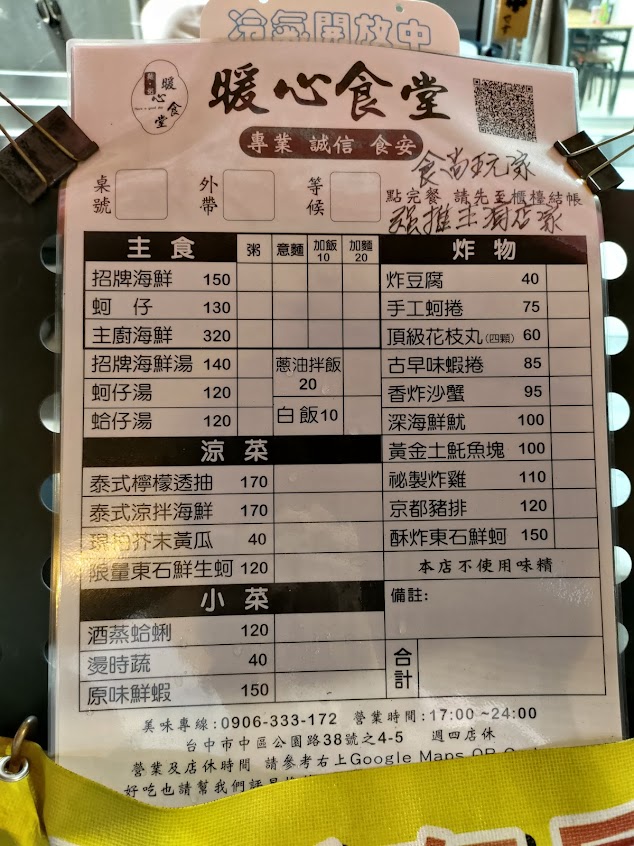 冷氣開放中
暖心食堂
暖心食堂
專業 誠信 食安
食尚玩家
桌號 外帶 等候 點完餐 請先至櫃檯結帳
強推主廚店家
主食 粥 意麵 加飯10 加麵20
招牌海鮮 150
蚵仔 130
主廚海鮮 320
招牌海鮮湯 140 蔥油拌飯20
蚵仔湯 120
蛤仔湯 120 白飯10
涼菜
泰式檸檬透抽 170
泰式涼拌海鮮 170
琅拍芥末黃瓜 40
限量東石鮮生蚵 120
小菜
酒蒸蛤蜊 120
燙時蔬 40
原味鮮蝦 150
炸物
炸豆腐 40
手工蚵捲 75
頂級花枝丸(四顆) 60
古早味蝦捲 85
香炸沙蟹 95
深海鮮魷 100
黃金土魠魚塊 100
祕製炸雞 110
京都豬排 120
酥炸東石鮮蚵 150
本店不使用味精
備註:
合計
美味專線:0906-333-172 營業時間:17:00~24:00
台中市中區公園路38號之4-5 週四店休
營業及店休時間 請參考右上Google Maps QR
好吃也請幫我們評